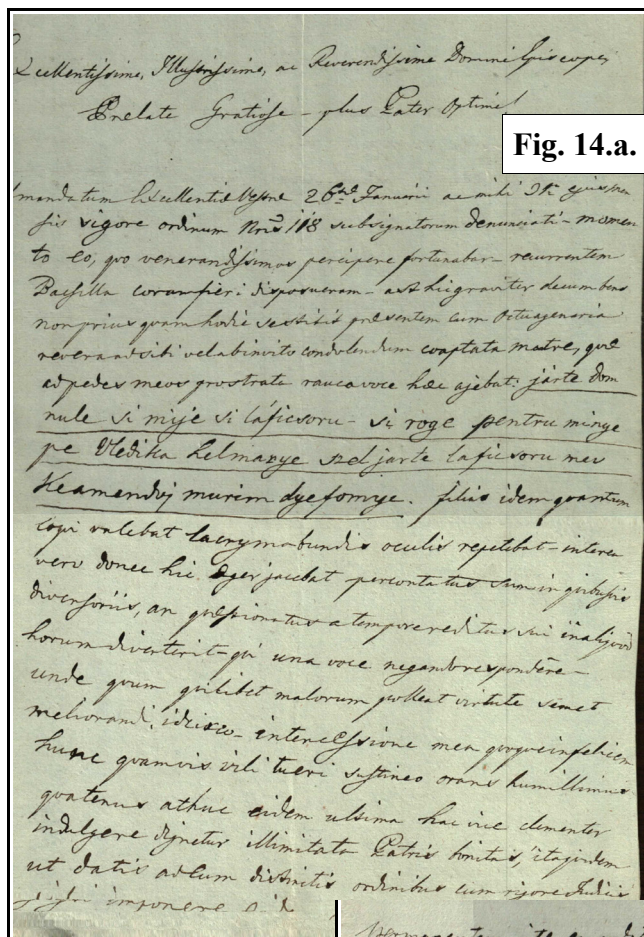 Excellentissime, Illustrissime, ac Reverendissime Domine Episcope,
Prelate Gratiose - plus Pater Optime!
Fig. 14.a.
mandatum Excellentie Vestre 26te Januarii ac mihi ejusmen
sis vigore ordinum Nris 118 subsignatorum denunciati - momen
to eo, quo venerandissimas percipere fortunabar - recurrentem
Bassilla coram fieri disposueram - ast hic graviter decumbens
non prius quam hodie se stitit presentem cum Octuagenaria
revera ad sibi vel ab invito condolendum coaptata matre, que
ad pedes meos prostrata rauca voce hec ajebat: járte dom
nule si mije si láficsoru - si roge pentru minye
pe Vledika kelmarye sel jarte laficsoru meu
keamendoj murim dye fomye. filius idem quantum
capi valebat lacrymabundis oculis repetebat - interea
vero donec hic eger jacebat percontatus sum in quibusvis
diversoriis, an questionatus a tempore reditus sui in aliquod
horum diverterit - qui una voce negando respondere -
unde quum quilibet malorum polleat virtute semet
meliorandi, idcirco - intercessione mea quoque infelicem
hunc quamvis vili tueri sustineo orans humillimus
quatenus athuc eidem ultima hac vice clementer
indulgere dignetur illimitata Patris bonitas, itaquidem
ut datis ad eum districtis ordinibus cum rigore Judicii
imponere